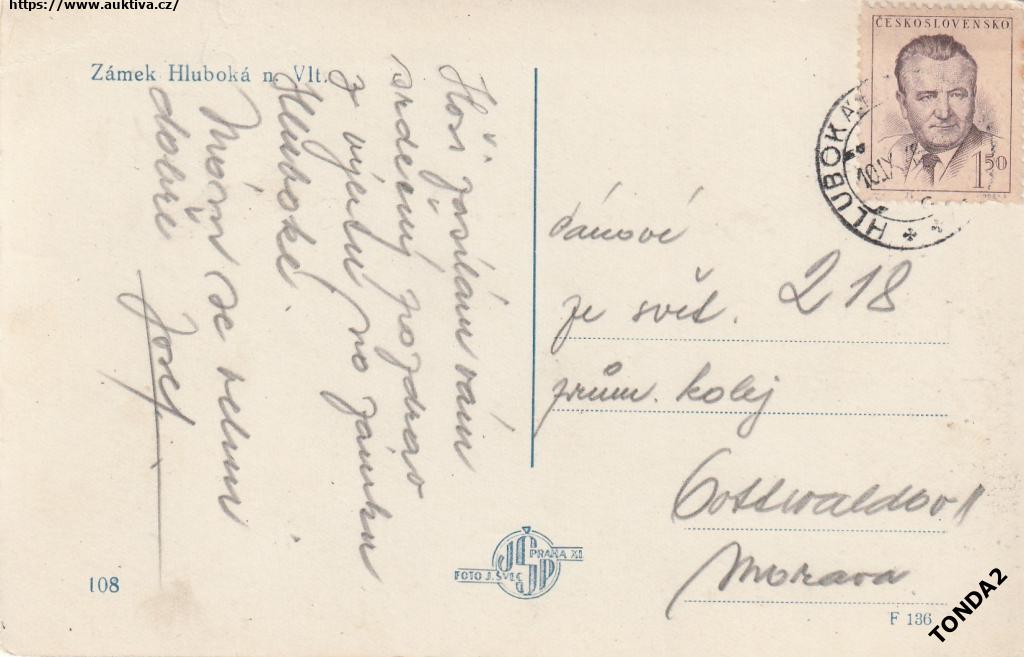 https://www.auktiva.cz/
ČESKOSLOVENSKO
1 50
HLUBOKÁ
10.IX
Zámek Hluboká n. Vlt.
Hoši, zasílám vám
srdečný pozdrav
z výletu na zámku
Hluboké.
Mám se velmi
dobře
Josef
Pánové
ze svět. 218
prům. kolej
Gottwaldov 1
Morava
JŠP
PRAHA XI
FOTO J. ŠVEC
108
F 136
TONDA2